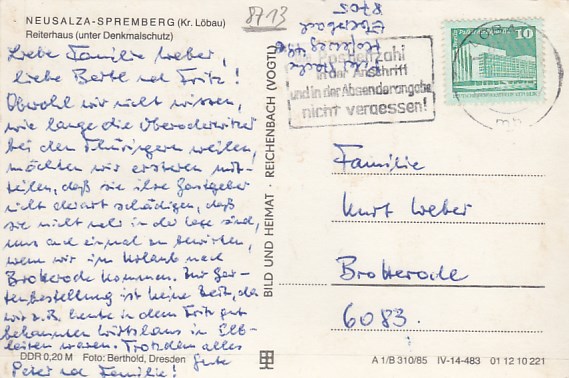 NEUSALZA-SPREMBERG (Kr. Löbau)
Reiterhaus (unter Denkmalschutz)
8713
Liebe Familie Weber,
liebe Berte und Fritz!
Obwohl wir nicht wissen,
wie lange die Oberoderwitzer
bei den Thüringern weilen,
möchten wir ersteren mit-
teilen, daß sie ihre Gastgeber
nicht derart schädigen, daß
sie nicht mehr in der Lage sind,
uns auch einmal zu bewirten,
wenn wir im Urlaub nach
Brotterode kommen. Zur Gar-
tenbestellung ist keine Zeit, da
wir z.B. heute in dem Fritz gut
bekannten Wirtshaus in
waren. Trotzdem alles Gute
Peter und Familie!
DDR 0,20 M Foto: Berthold, Dresden
BILD UND HEIMAT · REICHENBACH (VOGTL)
Ebersbach
8705
Postleitzahl
in der Anschrift
und in der Absenderangabe
nicht vergessen!
10
Familie
Kurt Weber
Brotterode
6083
A 1/B 310/85 IV-14-483 01 12 10 221